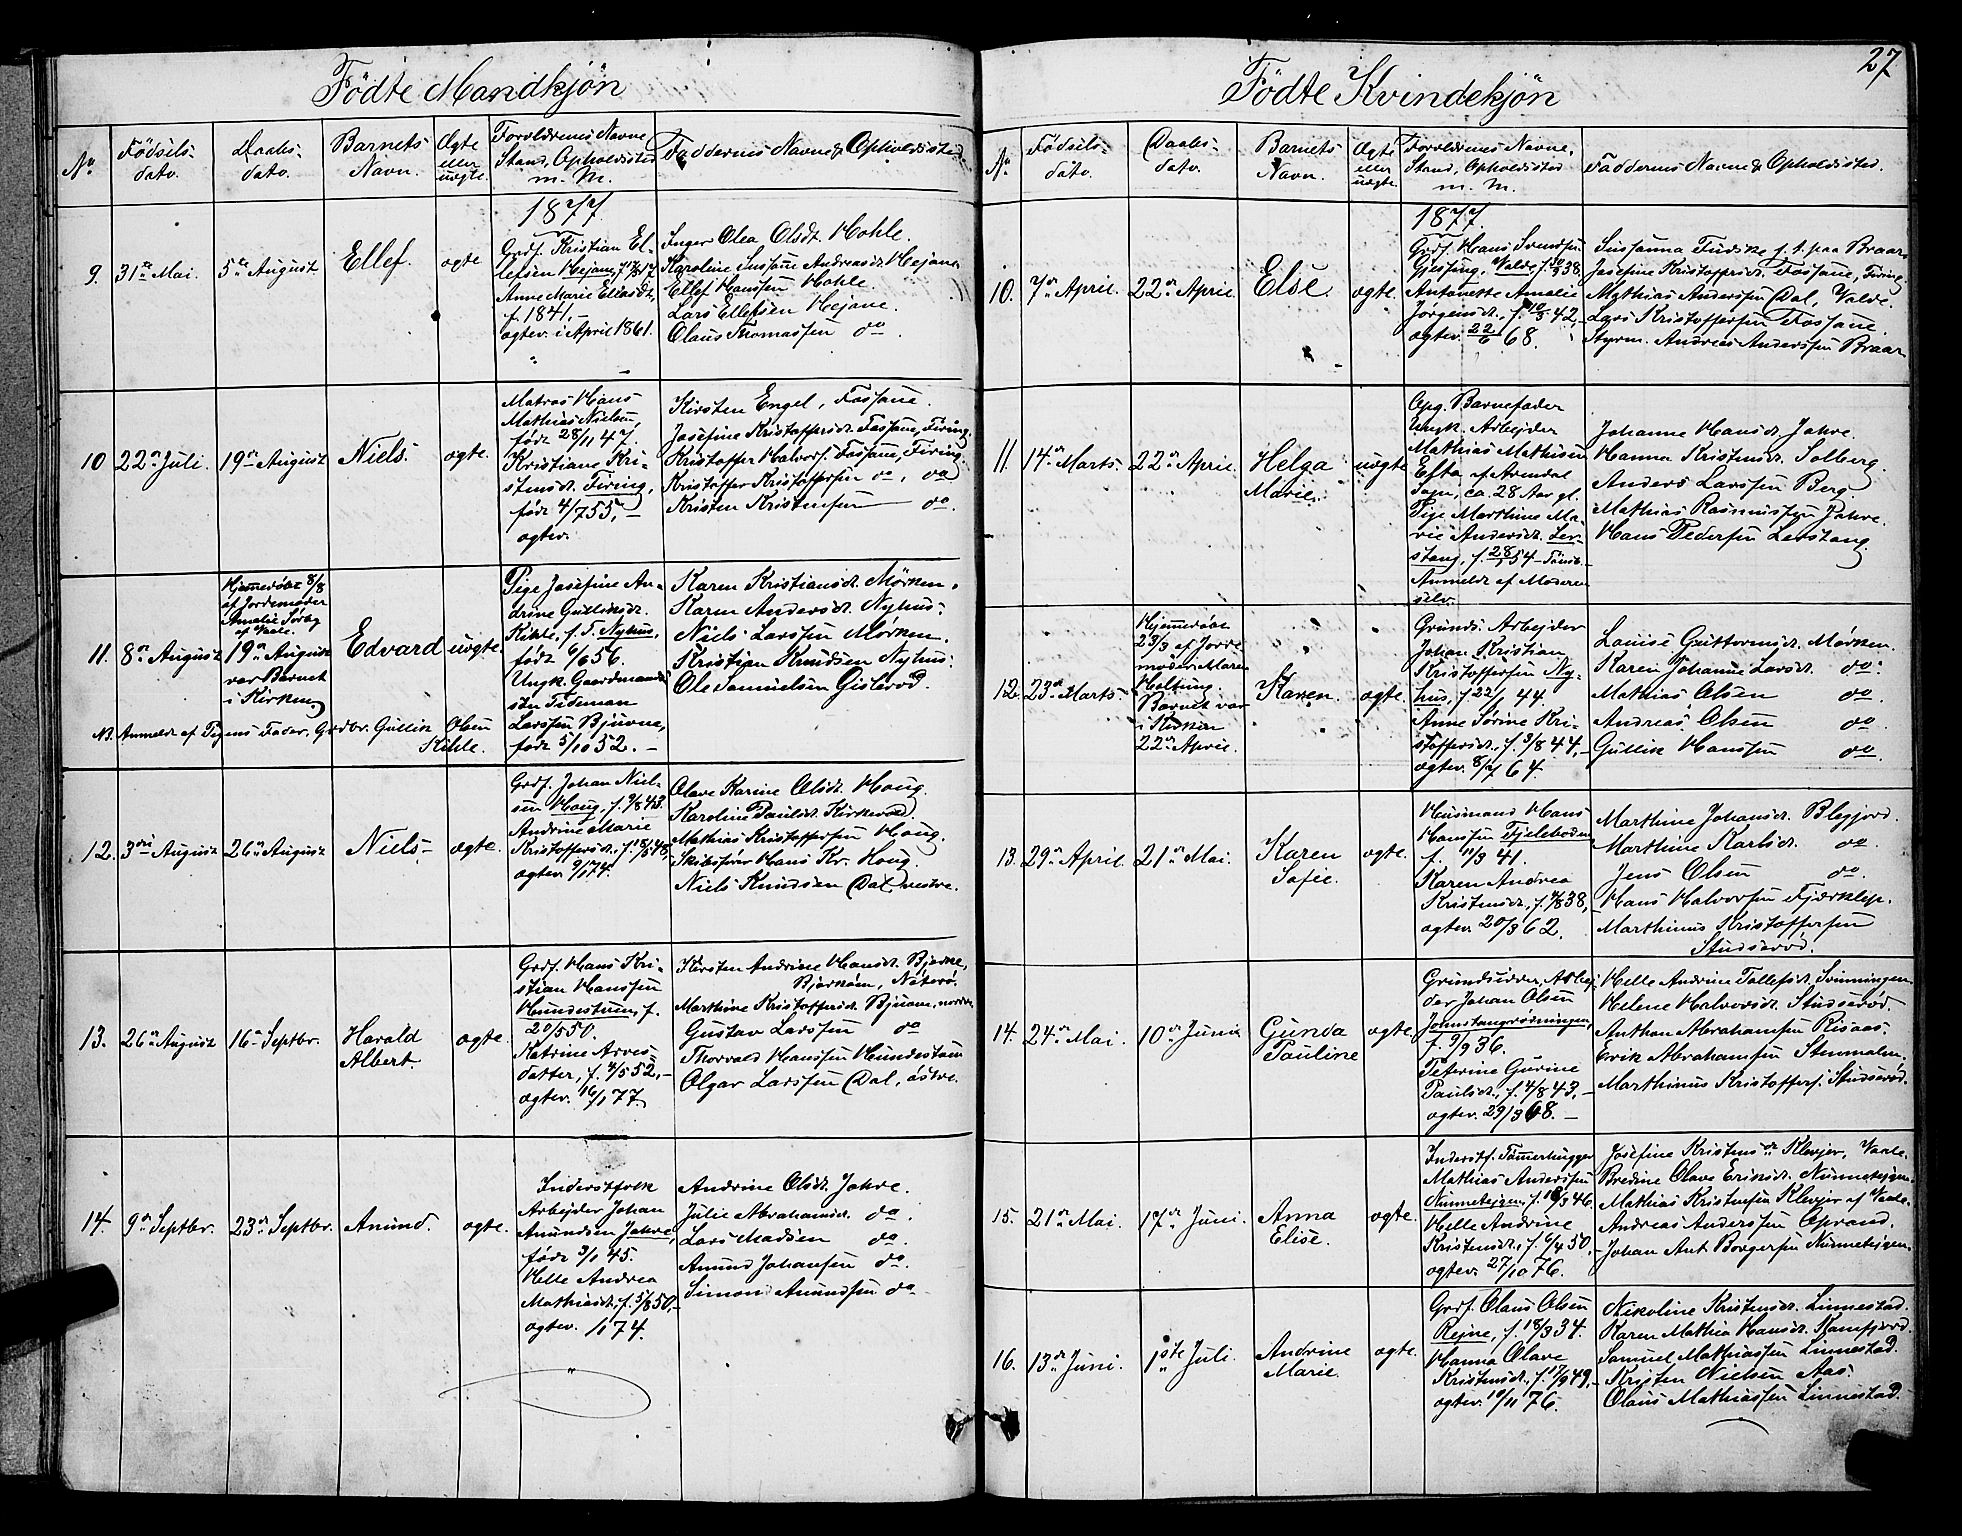 27
Födte Mandkjön
No.
Födsils-
dato.
Daabs-
dato.
Barnets
Navn.
Ægte
eller
uægte.
Forældrenes Navne
Stand, Opholdssted
m. M.
Faddernes Navne & Opholdssted
1877.
9.
31te Mai.
5te August
Ellef.
ægte
Grdf. Kristian El-
lefsen Hejane,
Anne Marie Eliasdt,
f. 1841,-
ægtev. i April 1861.
Inger Olea Olsdt. Hohle.
Karoline Susane Andreasdt. Hejane
Ellef Hanssen Hohle.
Lars Ellefsen Hejane.
Olaus Thomassen do
10
22de Juli.
19de August
Niels.
ægte.
Matros Hans
Mathias Nielsen,
född 28/11 47.
Kristiane Kri-
stensdt. Firing,
född 4/7 55,-
ægtev.
Kirsten Engel, Fossane.
Josefine Kristoffersdt. Fossane, Firing.
Kristoffer Halvors. Fossane, Firing.
Kristoffer Kristoffersen do, do
Kristen Kristensen do.
11.
8de August
Hjemmedöbt 8/8
af Jordemoder
Amalie Söeby
af Vaale.
19de August
var Barnet
i Kirken
Edvard
uægte.
Pige Josefine An-
drine Gulliksdt.
Kihle, f. T. Nyhus,
född 6/6 56.
Ungk. Gaardmands
sön Tideman
Larssen Bjuvne,
född 5/10 52. -
Karen Kristiansdt. Mörken.
Karen Andersdt. Nyhus.
Niels Larssen Mörken.
Kristian Knudsen Nyhus.
Ole Samuelsen Gislerød.
NB. Anmeldt af Pigens Fader, Grdbr. Gullik Olsen
Kihle.
12.
3die August
26de August
Niels-
ægte.
Grdf. Johan Niel-
sen Houg, f. 9/8 43.
Andrine Marie
Kristoffersdt. f. 18/5 48,
ægtev. 9/1 74.
Olave Karine Olsdt. Houg.
Karoline Paulsdt. Kirkevold.
Mathias Kristoffersen Houg.
Skibsförer Hans Kr. Houg.
Niels Knudsen Dal, vestre.
13.
26de August
16de Septbr.
Harald
Albert.
ægte.
Grdf. Hans Kri-
stian Hanssen
Hundestuen, f.
20/5 50.
Katrine Arves-
datter, f. 4/5 52,-
ægtev. 16/1 77.
Kirsten Andrine Hansdt. Bjerke,
Bjerkøen, Nøterø.
Marthine Kristoffersdt. Bjuvne, nordre.
Gustav Larssen do
Thorvald Hanssen Hundestuen
Olgar Larssen Dal, östre.
14.
9de Septbr.
23de Septbr.
Amund.
ægte.
Inderstfolk
Arbejder Johan
Amundsen Jahre,
född 3/1 45.
Helle Andrea
Mathiasdt. f. 5/8 50,-
ægtev. 74.
Andrine Olsdt. Jahre.
Julie Abrahamsdt. do.
Lars Madsen do.
Amund Johansen do.
Simon Amundsen do
Födte Kvindekjön
No.
Födsils-
dato.
Daabs-
dato.
Barnets
Navn.
Ægte
eller
uægte.
Forældrenes Navne,
Stand, Opholdssted
m. M.
Faddernes Navne & Opholdssted.
1877.
10.
7de April.
22de April.
Else.
ægte.
Grdf. Hans Svendsen
Gjersing, Valde,
Antonette Amalie
Jörgensdt., f. 10/5 42,-
ægtev. 22/6 68.
Sussanna Fudske f. t. paa Braar.
Josefine Kristoffersdt. Fossane, Firing.
Mathias Anderssen Dal, Valde.
Lars Kristoffersen Fossane.
Styrm. Andreas Anderssen Braar
11.
14de Marts.
22de April.
Helga
Marie.
uægte
Opg. Barnefader
Ungk. Arbejder
Mathias Mathisen
Efta af Arendal
Sogn, ca. 28 Aar gl.
Pige Marthine Ma-
rie Andersdt. Ler-
stang, f. 54
Anmeldt af Moderen
selv.
Johanne Hansdt. Jahre.
Hanna Kristensdt. Solberg.
Anders Larssen Berg.
Mathias Rasmussen Jahre.
Hans Pederssen Lerstang.
12.
23de Marts
Hjemmedöbt
28/3 af Jorde-
moder Maren
Holtung.
Barnet var
i Kirken
22de April.
Karen.
ægte.
Grunds. Arbejder
Johan Kristian
Kristoffersen Ny-
hus, f. 22/1 44.
Anne Sörine Kri-
stoffersdt., f. 3/8 44,-
ægtev. 8/7 64.
Louise Guttormsdt. Mörken.
Karen Johanne Larsdt. do.
Mathias Olsen do
Andreas Olsen do
Gullik Hanssen do.
13.
29de April.
21de Mai.
Karen
Sofie.
ægte.
Husmand Hans
Hanssen Fjeleboden
f. 11/3 41.
Karen Andrea
Kristensdt., f. 4/8 38,-
ægtev. 20/3 62.
Marthine Johansdt. Blegjord.
Marthine Karlsdt. do.
Jens Olsen do.
Hans Halvorsen Fjærklep.
Marthinus Kristoffersen
Studserød.
14.
24de Mai.
10de Juni
Gunda
Pauline
ægte.
Grundsidder, Arbej-
der Johan Olsen
Jahnstangrødningen,
f. 9/9 36.
Peterine Gurine
Paulsdt., f. 4/8 43,-
ægtev. 29/3 68.-
Helle Andrine Tollefsdt. Svinningen.
Helene Halvorsdt. Studserød.
Anthon Abrahamsen Risaas.
Erik Abrahamsen Stenmalen.
Marthinus Kristoffers. Studserød.
15.
21de Mai.
17de Juni.
Anna
Elise.
ægte.
Inderstf. Tömmerhugger
Mathias Anderssen
Nunnetejgen, f. 18/3 46.
Helle Andrine
Kristensdt., f. 6/4 50,
ægtev. 27/10 76.
Josefine Kristensdt Klevjer, Vaale.
Bredine Olave Eriksdt. Nunnetejgen.
Mathias Kristensen Klevjer af Vaale.
Andreas Anderssen Oprand.
Johan Ant. Borgersen Nunnetejgen.
16.
13de Juni.
1ste Juli.
Andrine
Marie.
ægte.
Grdf. Olaus Olsen
Rejne, f. 18/3 34.
Hanna Olave
Kristensdt., f. 17/9 49,-
ægtev. 10/11 76.
Nikoline Kristensdt. Linnestad.
Karen Mathea Hansdt. Ramfjord.
Samuel Mathiassen Linnestad.
Kristen Nielsen Aas.
Olaus Mathiassen Linnestad.